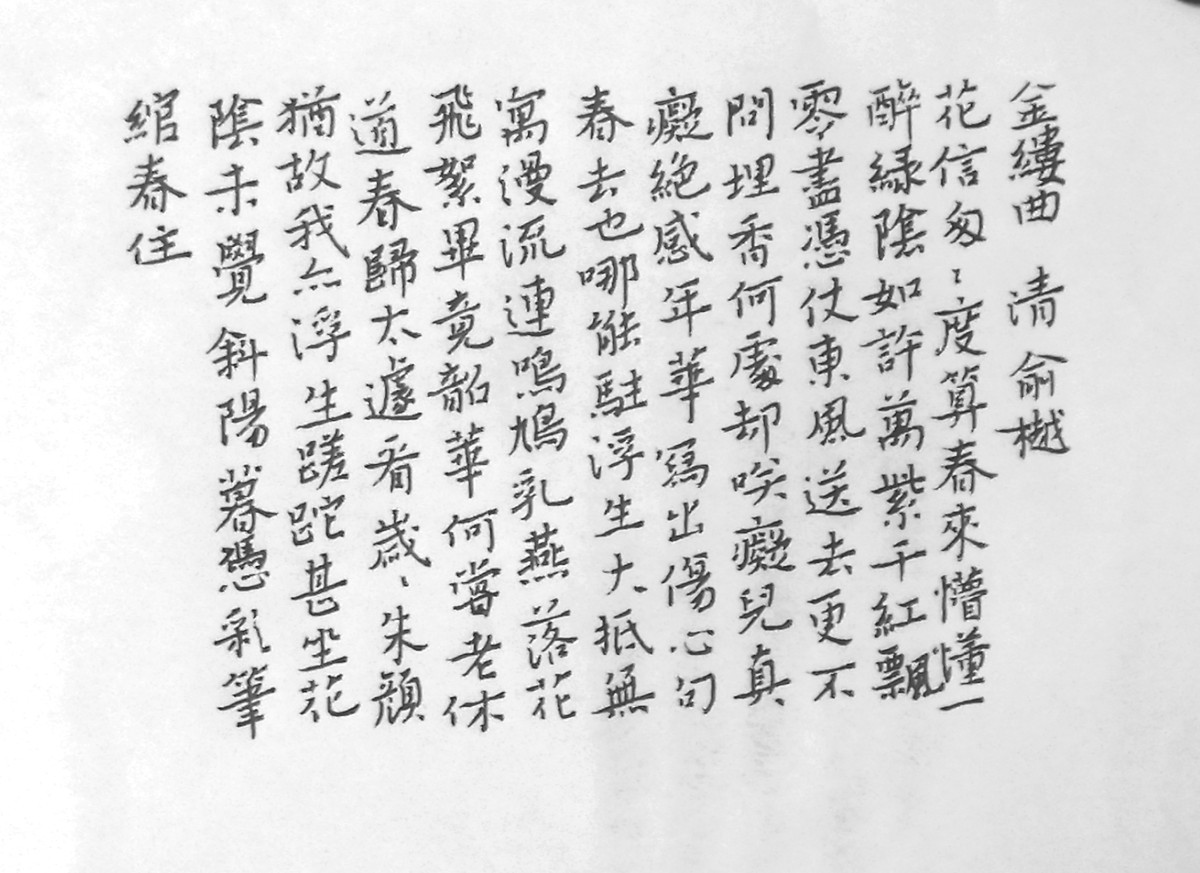 金縷曲 清 俞樾
花信匆〻度算春來懵懂一
醉綠陰如許萬紫千紅飄
零盡憑仗東風送去更不
問埋香何處却笑癡兒真
癡絕感年華寫出傷心句
春去也哪能駐浮生大抵無
寓漫流連鳴鳩乳燕落花
飛絮畢竟韶華何嘗老休
道春歸太遽看歲〻朱顏
猶故我亦浮生蹉跎甚坐花
陰未覺斜陽暮憑彩筆
綰春住